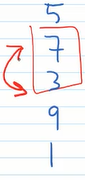 5
7
3
9
1